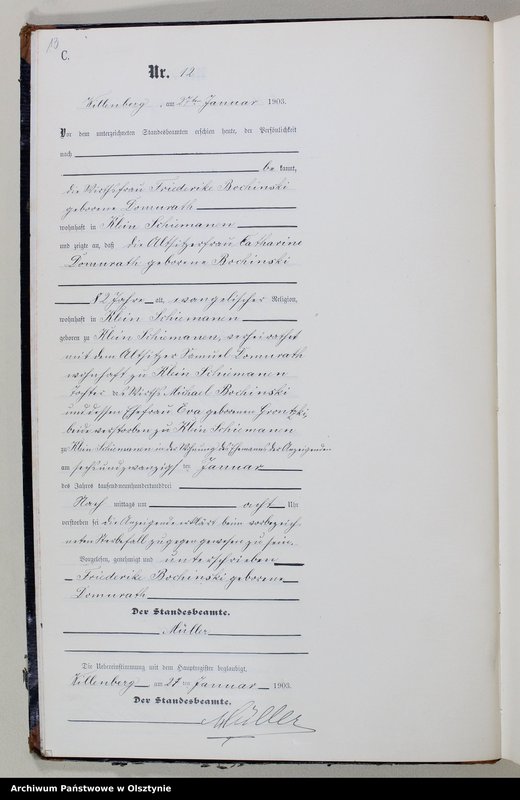 13
C.
Nr. 12
Willenberg, am 27ten Januar 1903.
Vor dem unterzeichneten Standesbeamten erschien heute, der Persönlichkeit
nach
be kannt,
die Wirthsfrau Friederike Bochinski
geborene Domurath
wohnhaft in Klein Schiemanen
und zeigte an, daß die Altsitzerfrau Catharine
Domurath geborene Bochinski
82 Jahre alt, evangelischer Religion,
wohnhaft in Klein Schiemanen
geboren zu Klein Schiemanen, verheirathet
mit dem Altsitzer Samuel Domurath
wohnhaft zu Klein Schiemanen
Tochter des Wirths Michael Bochinski
und dessen Ehefrau Eva geborenen
beide verstorben zu Klein Schiemanen
zu Klein Schiemanen in der Wohnung des Ehemannes der Anzeigenden
am sechsundzwanzigsten Januar
des Jahres tausendneunhundertunddrei
Nach mittags um acht Uhr
verstorben sei die Anzeigende erklärt beim vorbezeich-
neten Sterbefall zugegen gewesen zu sein.
Vorgelesen, genehmigt und unterschrieben
Friederike Bochinski geborene
Domurath
Der Standesbeamte.
Müller
Die Uebereinstimmung mit dem Hauptregister beglaubigt.
Willenberg am 27 ten Januar 1903.
Der Standesbeamte.
Müller
Archiwum Państwowe w Olsztynie